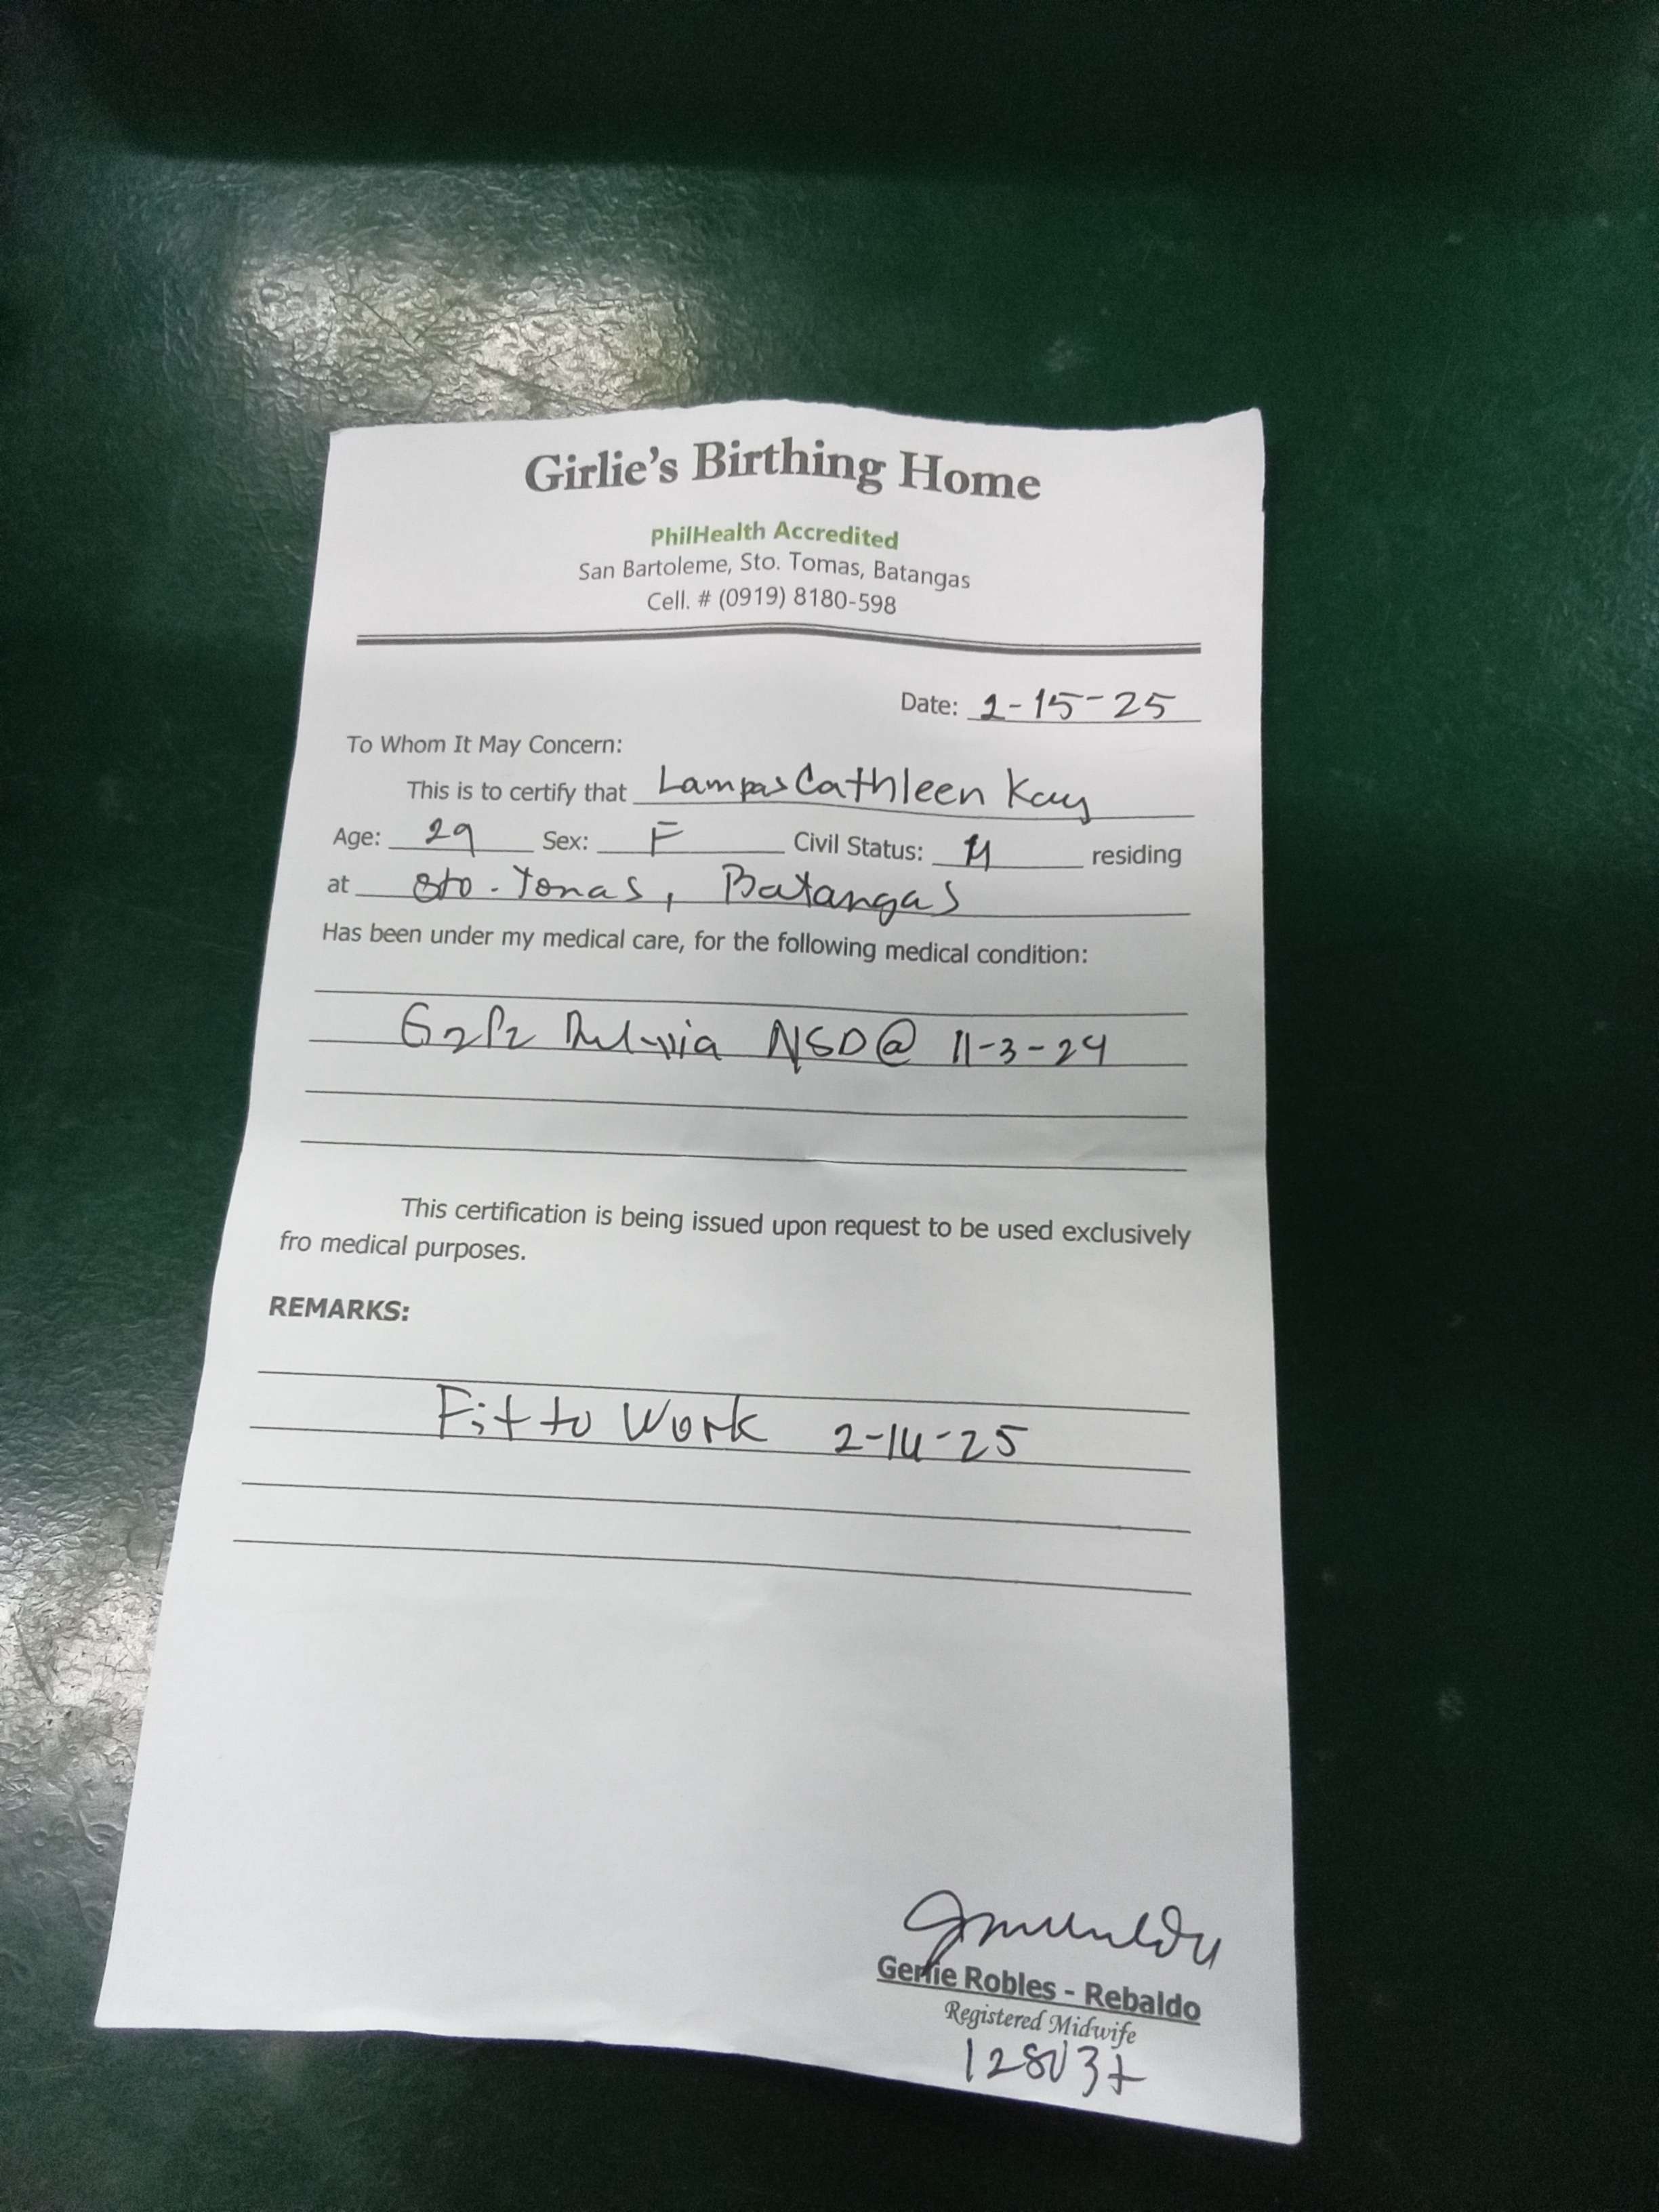 Girlie's Birthing Home
PhilHealth Accredited
San Bartoleme, Sto. Tomas, Batangas
Cell. # (0919) 8180-598
Date: 2-15-25
To Whom It May Concern:
This is to certify that Lampas Cathleen Kay
Age: 29 Sex: F Civil Status: M residing
at Sto. Tomas, Batangas
Has been under my medical care, for the following medical condition:
G2P2 Del via NSD @ 11-3-24
This certification is being issued upon request to be used exclusively
fro medical purposes.
REMARKS:
Fit to Work 2-14-25
Genie Robles - Rebaldo
Registered Midwife